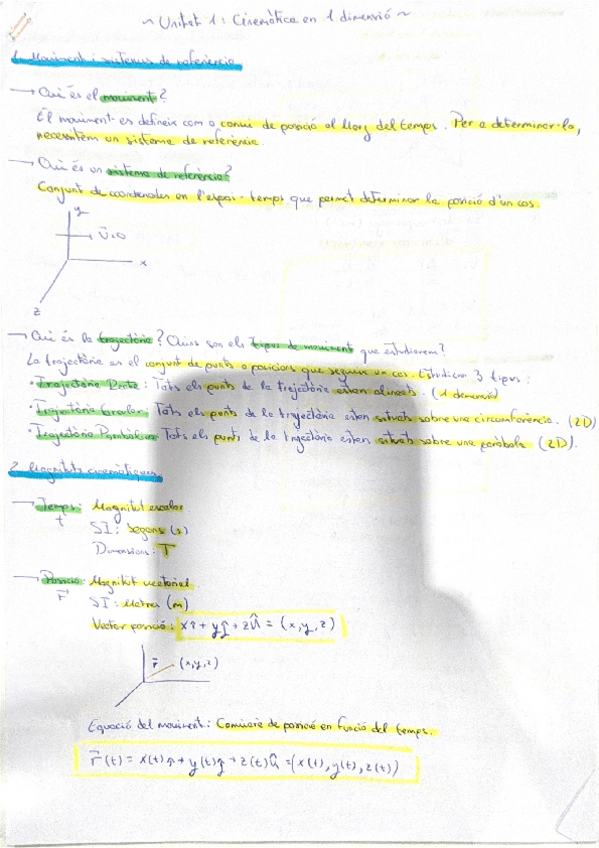 ~ Unitat 1: Cinemàtica en 1 dimensió ~
1. Moviment i sistemes de referència
→ Què és el moviment?
El moviment es defineix com a canvi de posició al llarg del temps. Per a determinar-lo,
necessitem un sistema de referència.
→ Què és un sistema de referència?
Conjunt de coordenades en l'espai-temps que permet determinar la posició d'un cos.
y
v=0
x
z
→ Què és la trajectòria? Quins son els tipus de moviment que estudiarem?
La trajectòria es el conjunt de punts o posicions que segueix un cos. Estudiem 3 tipus:
• Trajectòria Recta: Tots els punts de la trajectòria estan alineats. (1 dimensió)
• Trajectòria Circular: Tots els punts de la trajectòria estan situats sobre una circumferència. (2D)
• Trajectòria Parabòlica: Tots els punts de la trajectòria estan situats sobre una paràbola (2D).
2. Magnituts cinemàtiques
→ Temps: Magnitut escalar
t
SI: Segons (s)
Dimensions: T
→ Posició: Magnitut vectorial
r⃗
SI: Metres (m)
Vector posició: xî + yĵ + zk̂ = (x,y,z)
r⃗ (x,y,z)
Equació del moviment: Canviaré de posició en funció del temps.
r⃗(t) = x(t)î + y(t)ĵ + z(t)k̂ = (x(t), y(t), z(t))